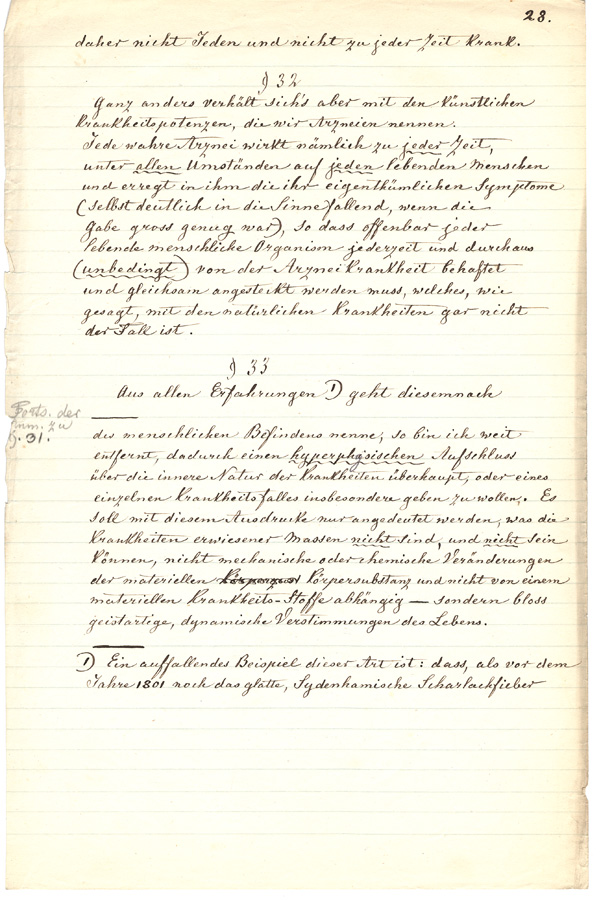 28.
daher nicht Jeden und nicht zu jeder Zeit krank.
§ 32
Ganz anders verhält sich's aber mit den künstlichen
Krankheitspotenzen, die wir Arzneien nennen.
Jede wahre Arznei wirkt nämlich zu jeder Zeit,
unter allen Umständen auf jeden lebenden Menschen
und erregt in ihm die ihr eigenthümlichen Symptome
(selbst deutlich in die Sinne fallend, wenn die
Gabe gross genug war), so dass offenbar jeder
lebende menschliche Organism jederzeit und durchaus
(unbedingt) von der Arzneikrankheit behaftet
und gleichsam angesteckt werden muss, welches, wie
gesagt, mit den natürlichen Krankheiten gar nicht
der Fall ist.
§ 33
Aus allen Erfahrungen 1) geht diesemnach
Forts. der
Anm. zu
§. 31.
des menschlichen Befindens nenne, so bin ich weit
entfernt, dadurch einen hyperphysischen Aufschluss
über die innere Natur der Krankheiten überhaupt, oder eines
einzelnen Krankheitsfalles insbesondere geben zu wollen. Es
soll mit diesem Ausdrucke nur angedeutet werden, was die
Krankheiten erwiesener Massen nicht sind, und nicht sein
können, nicht mechanische oder chemische Veränderungen
der materiellen Körpersubstanz und nicht von einem
materiellen Krankheits-Stoffe abhängig — sondern bloss
geistartige, dynamische Verstimmungen des Lebens.
1) Ein auffallendes Beispiel dieser Art ist: dass, als vor dem
Jahre 1801 noch das glatte, Sydenhamische Scharlachfieber